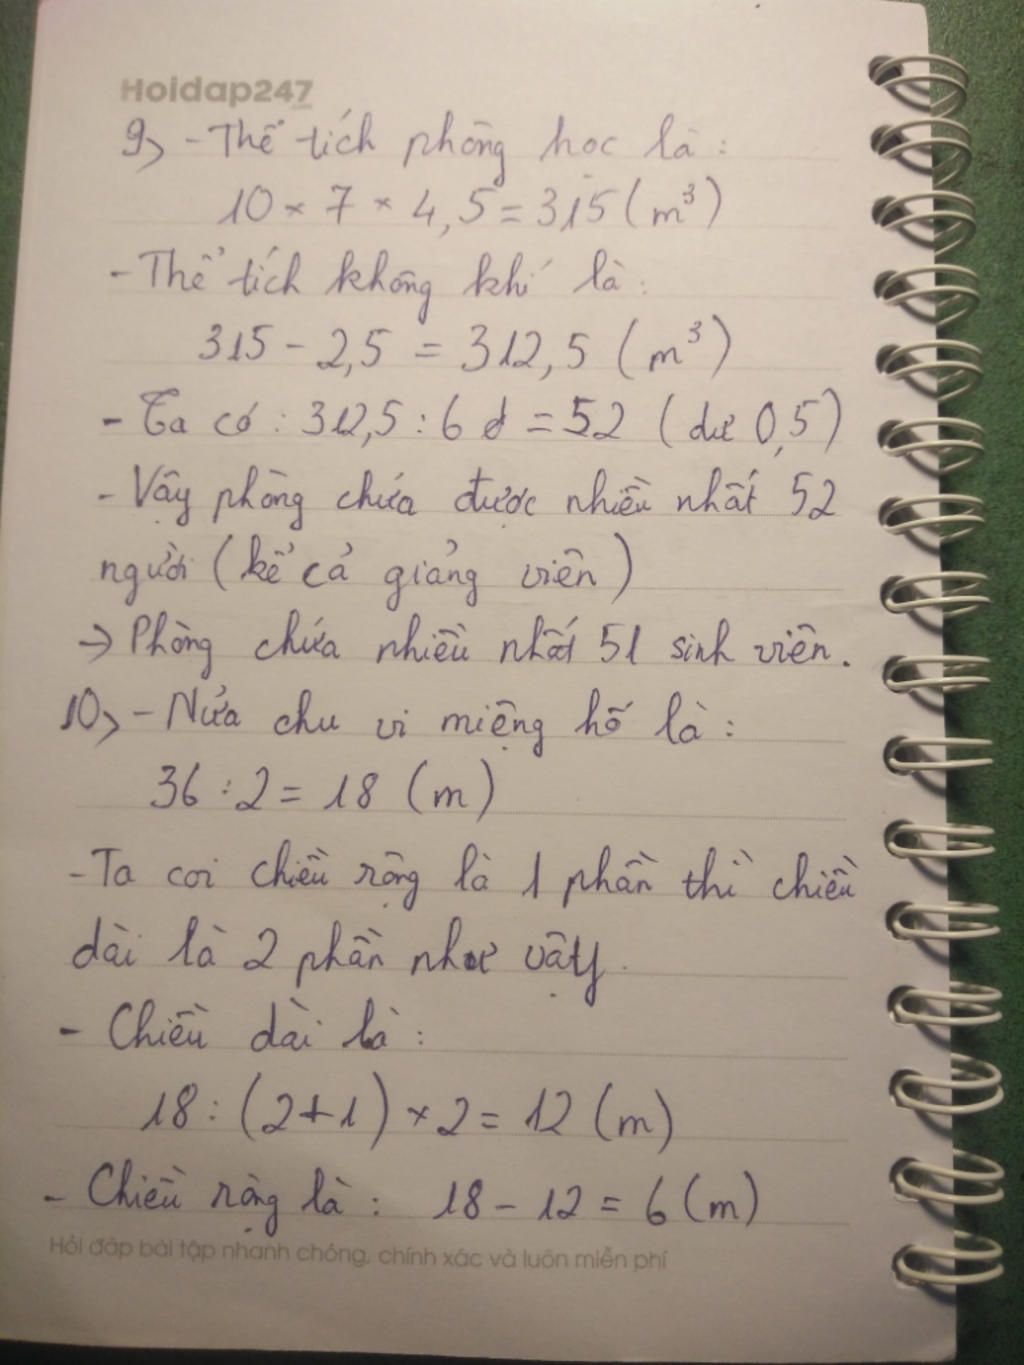 Hoidap247
9, - Thể tích phòng học là :
10 × 7 × 4,5 = 315 (m³)
- Thể tích không khí là :
315 - 2,5 = 312,5 (m³)
- Ta có : 312,5 : 6 = 52 (dư 0,5)
- Vậy phòng chứa được nhiều nhất 52
người (kể cả giảng viên)
→ Phòng chứa nhiều nhất 51 sinh viên.
10, - Nửa chu vi miệng hố là :
36 : 2 = 18 (m)
- Ta coi chiều rộng là 1 phần thì chiều
dài là 2 phần như vậy.
- Chiều dài là :
18 : (2+1) × 2 = 12 (m)
- Chiều rộng là : 18 - 12 = 6 (m)
Hỏi đáp bài tập nhanh chóng, chính xác và luôn miễn phí